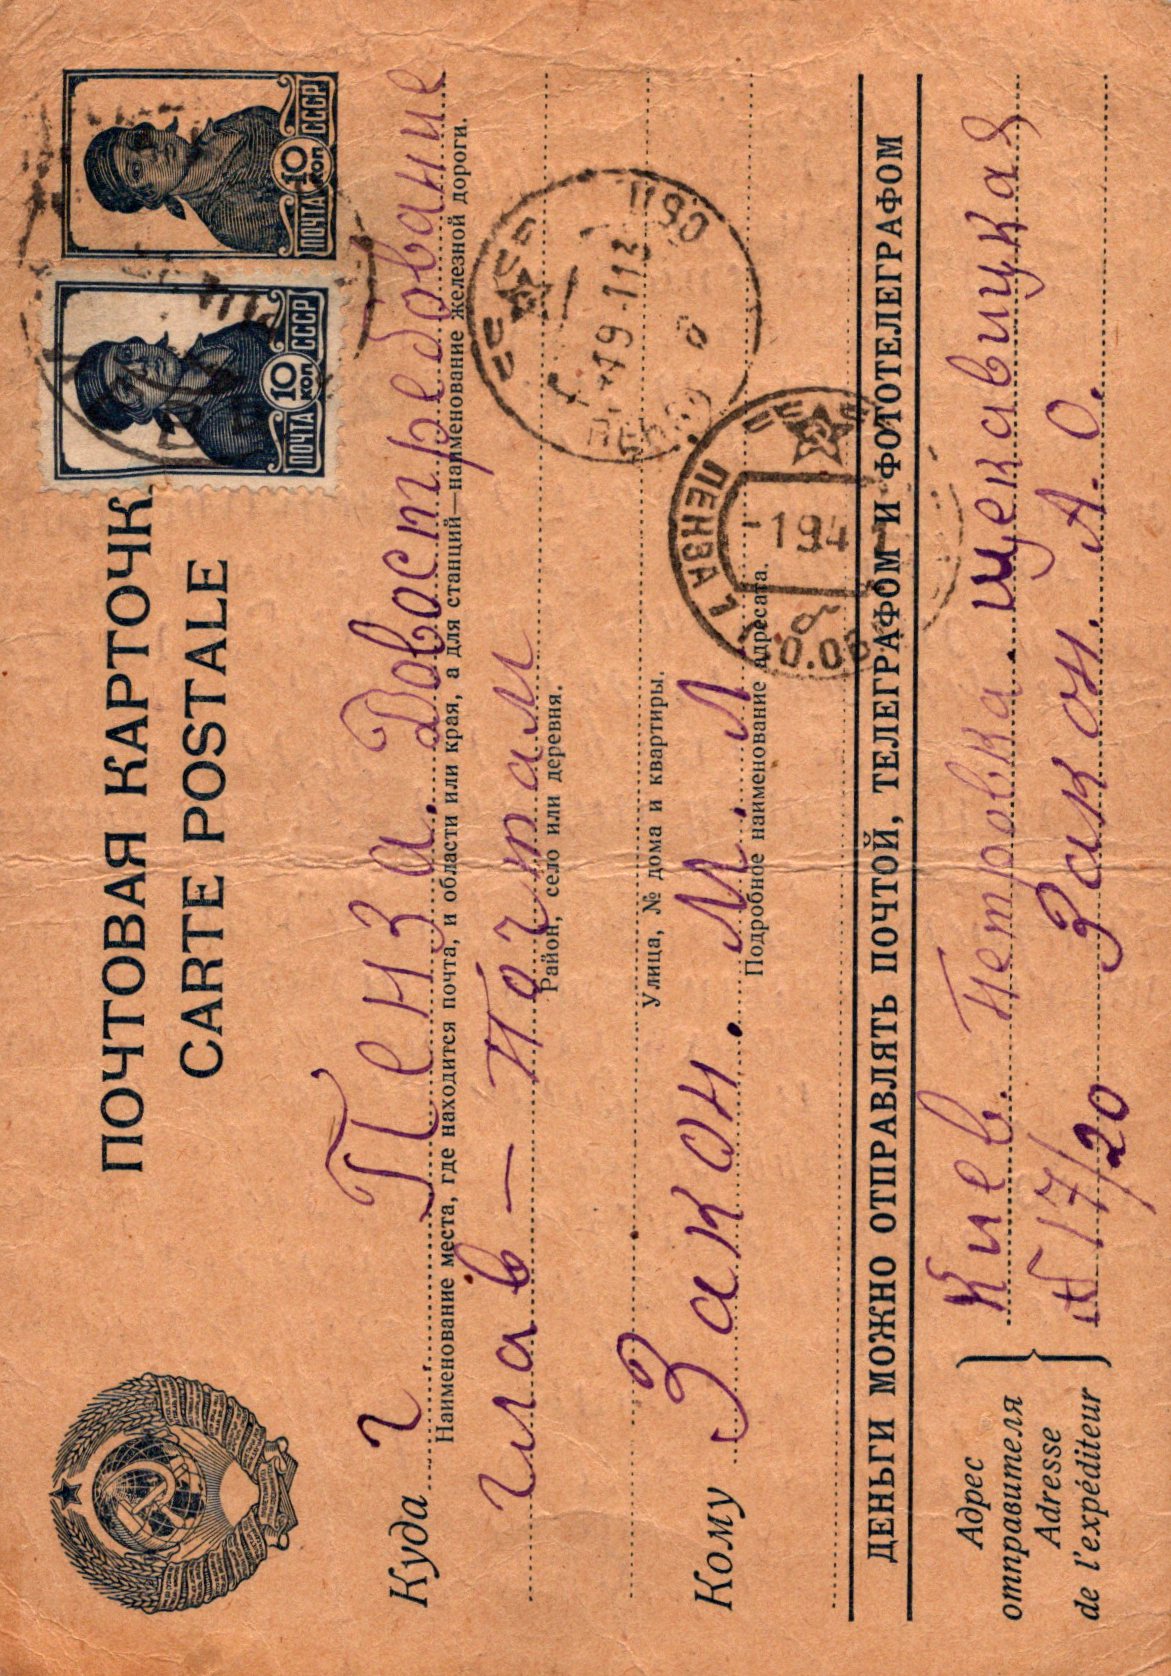 ПОЧТОВАЯ КАРТОЧК
CARTE POSTALE
ПОЧТА 10 КОП СССР
ПОЧТА 10 КОП СССР
Куда г. Пенза. Довостребование
Наименование места, где находится почта, и области или края, а для станций—наименование железной дороги.
глав – Почтам
Район, село или деревня.
Улица, № дома и квартиры.
Кому Закон. М. Л
Подробное наименование адресата.
ПЕНЗА
-1 9 4
19-1 1 13
ДЕНЬГИ МОЖНО ОТПРАВЛЯТЬ ПОЧТОЙ, ТЕЛЕГРАФОМ И ФОТОТЕЛЕГРАФОМ
Адрес отправителя
Adresse de l'expéditeur
Киев. Петровка. Щекавицкая
17/20 Закон. А. О.